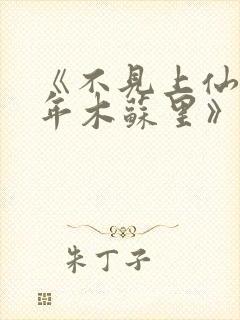 《不見上仙
年木蘇里》
朱丁子